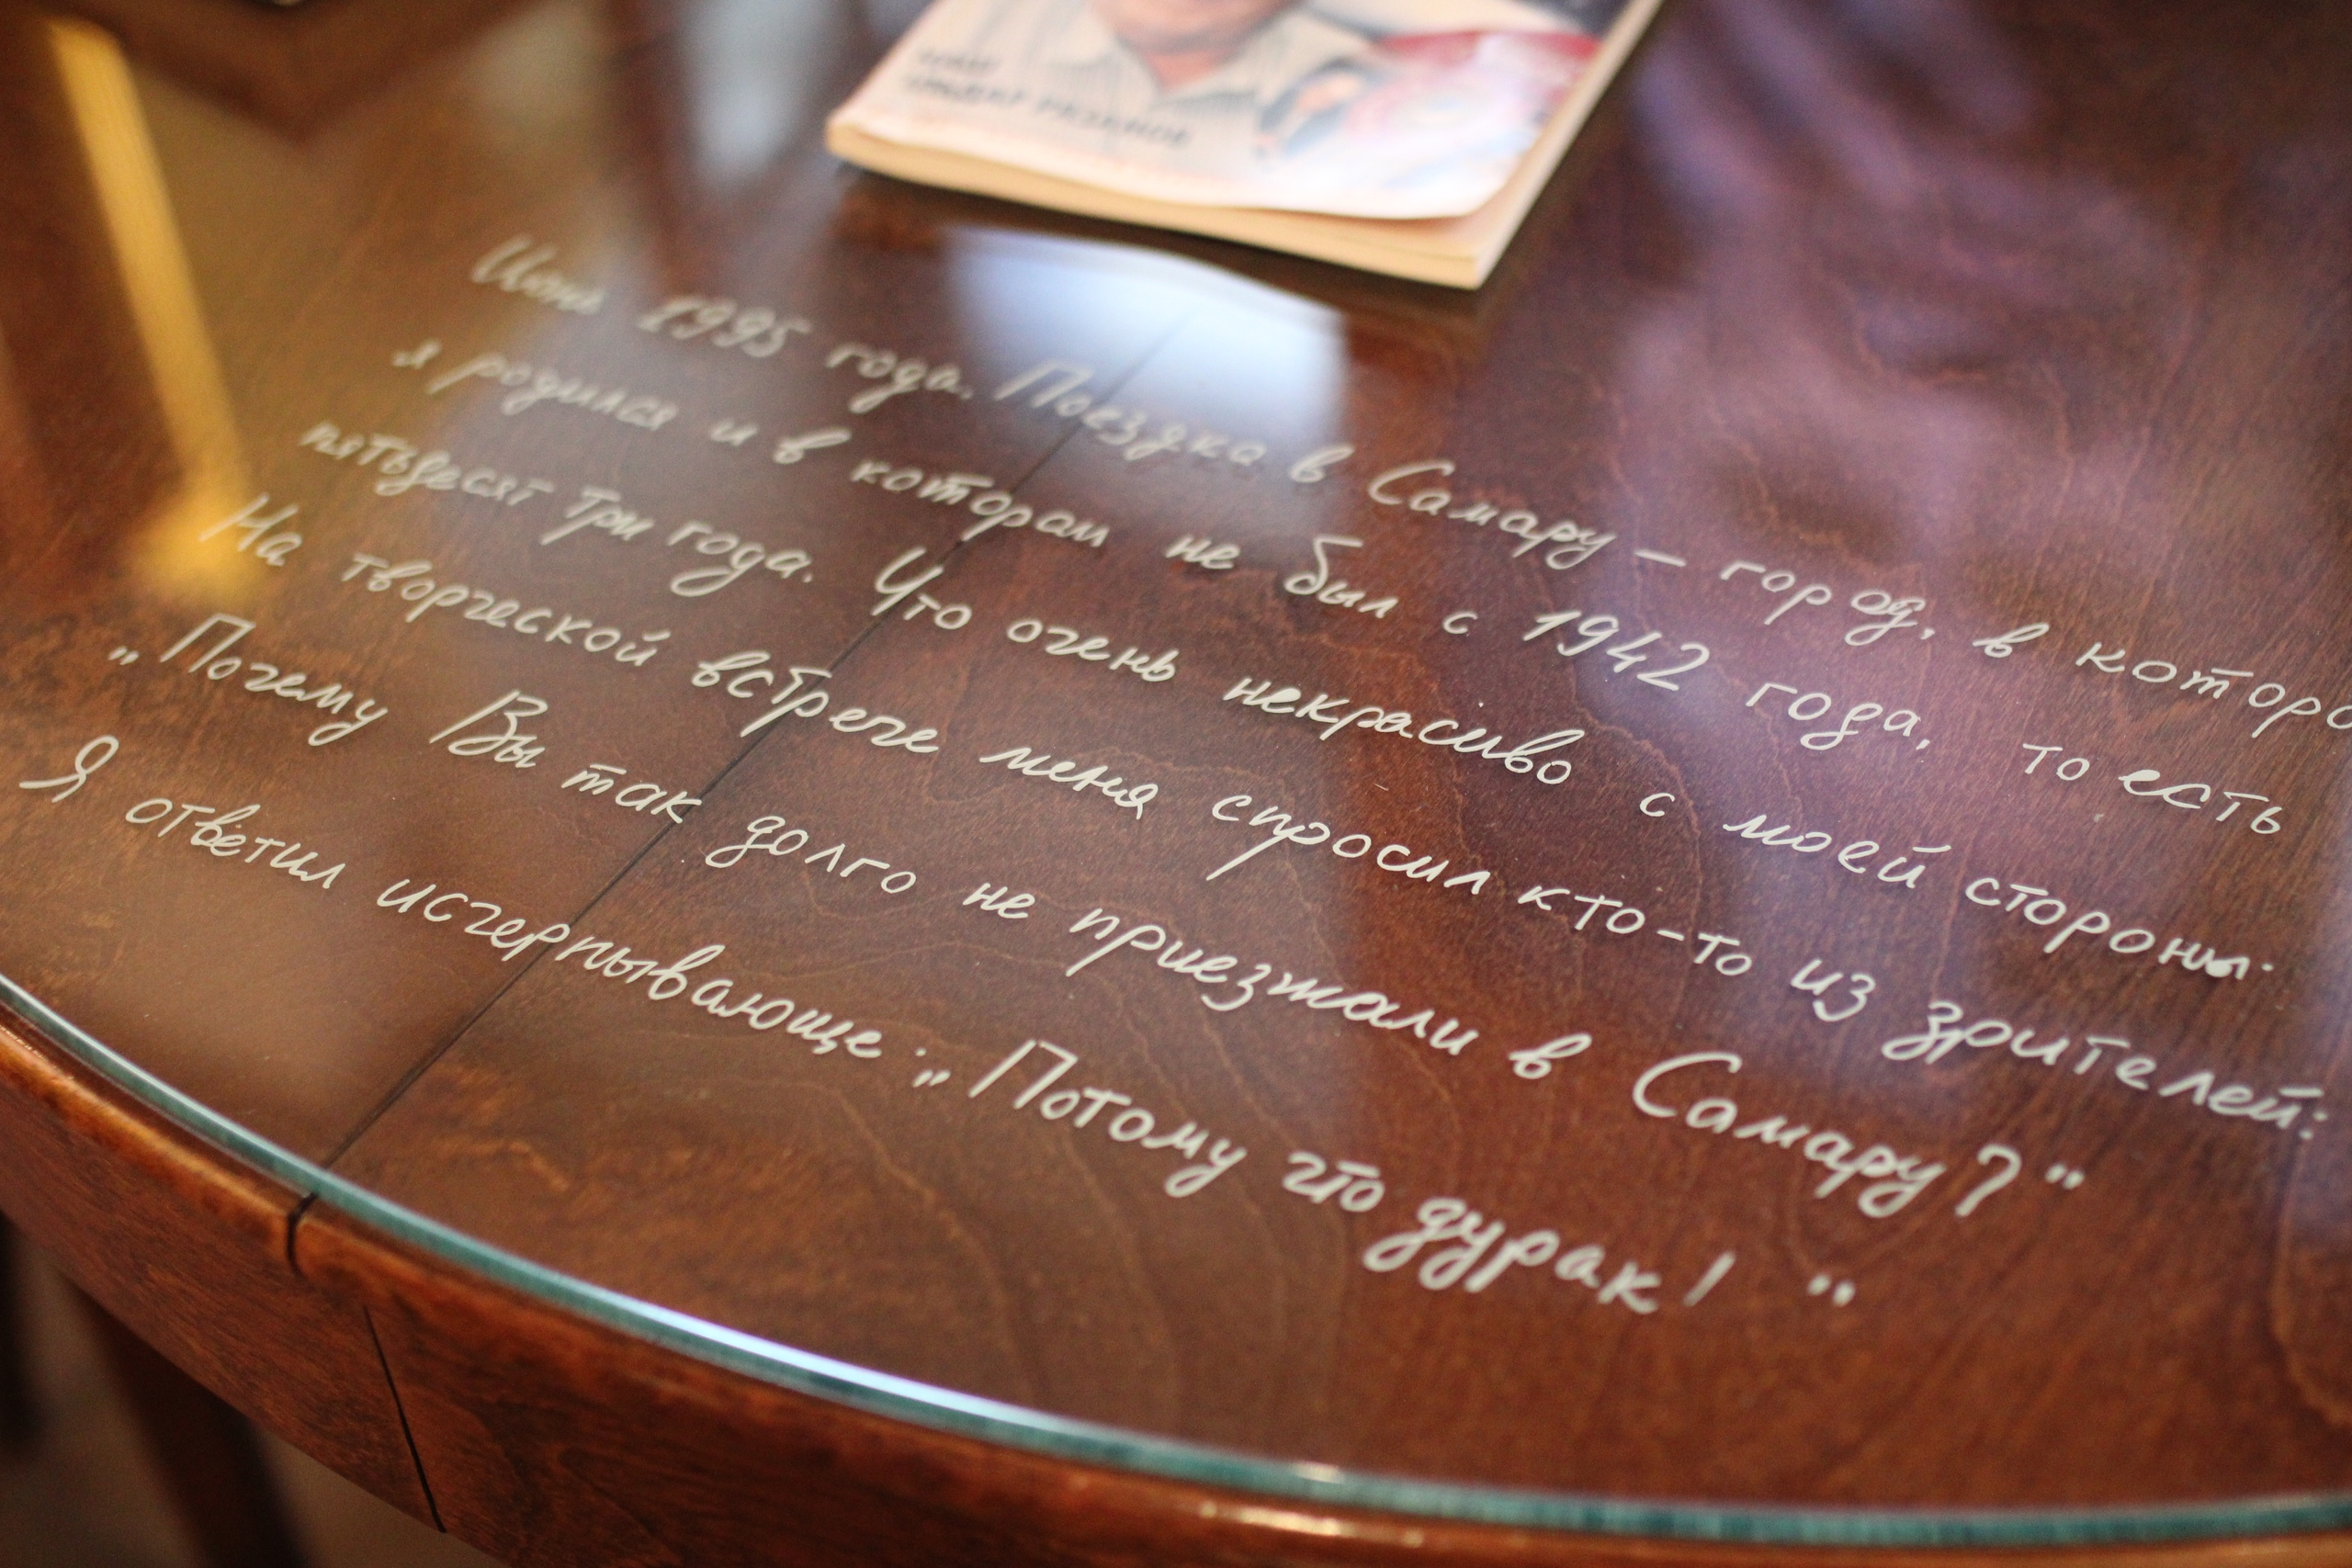 ЭЛЬДАР РЯЗАНОВ
1995 года. Поездка в Самару – город, в которо
я родился и в котором не был с 1942 года, то есть
пятьдесят три года. Что очень некрасиво с моей стороны.
На творческой встрече меня спросил кто-то из зрителей:
„Почему Вы так долго не приезжали в Самару?"
Я ответил исчерпывающе: „Потому что дурак!"